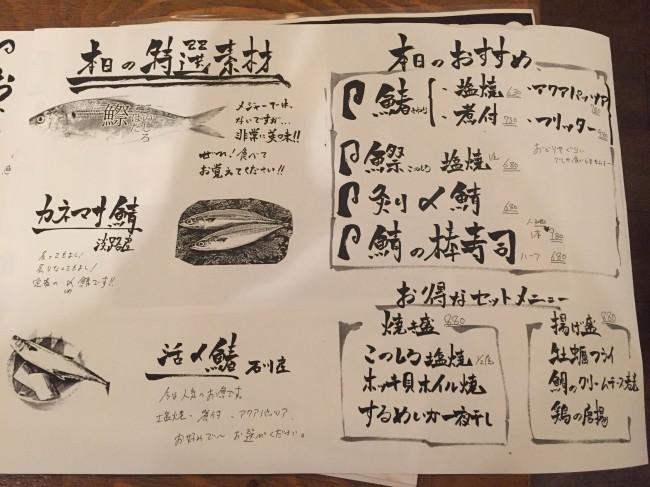 本日の特選素材
鰶
このしろ
メジャーでは、
ないですが…
非常に美味!!
ぜひ!食べて
お覚えてください!!
カネマサ鯖
淡路産
炙ってもよし!
定番の〆鯖です!!
活〆鰆
石川産
今が人気のお魚です。
塩焼・煮付、アクアパッツァ、
お好みでお選びください。
本日のおすすめ
鰆
・塩焼 630
・アクアパッツァ
・煮付 730
・フリッター
鰶 このしろ 塩焼 680
炙り〆鯖 680
鯖の棒寿司
1本 980
ハーフ 680
お得なセットメニュー
焼き盛 880
このしろ塩焼
ホッキ貝ホイル焼
するめいか一夜干し
揚げ盛 880
牡蠣フライ
鯛のクリームチーズ春巻
鶏の唐揚